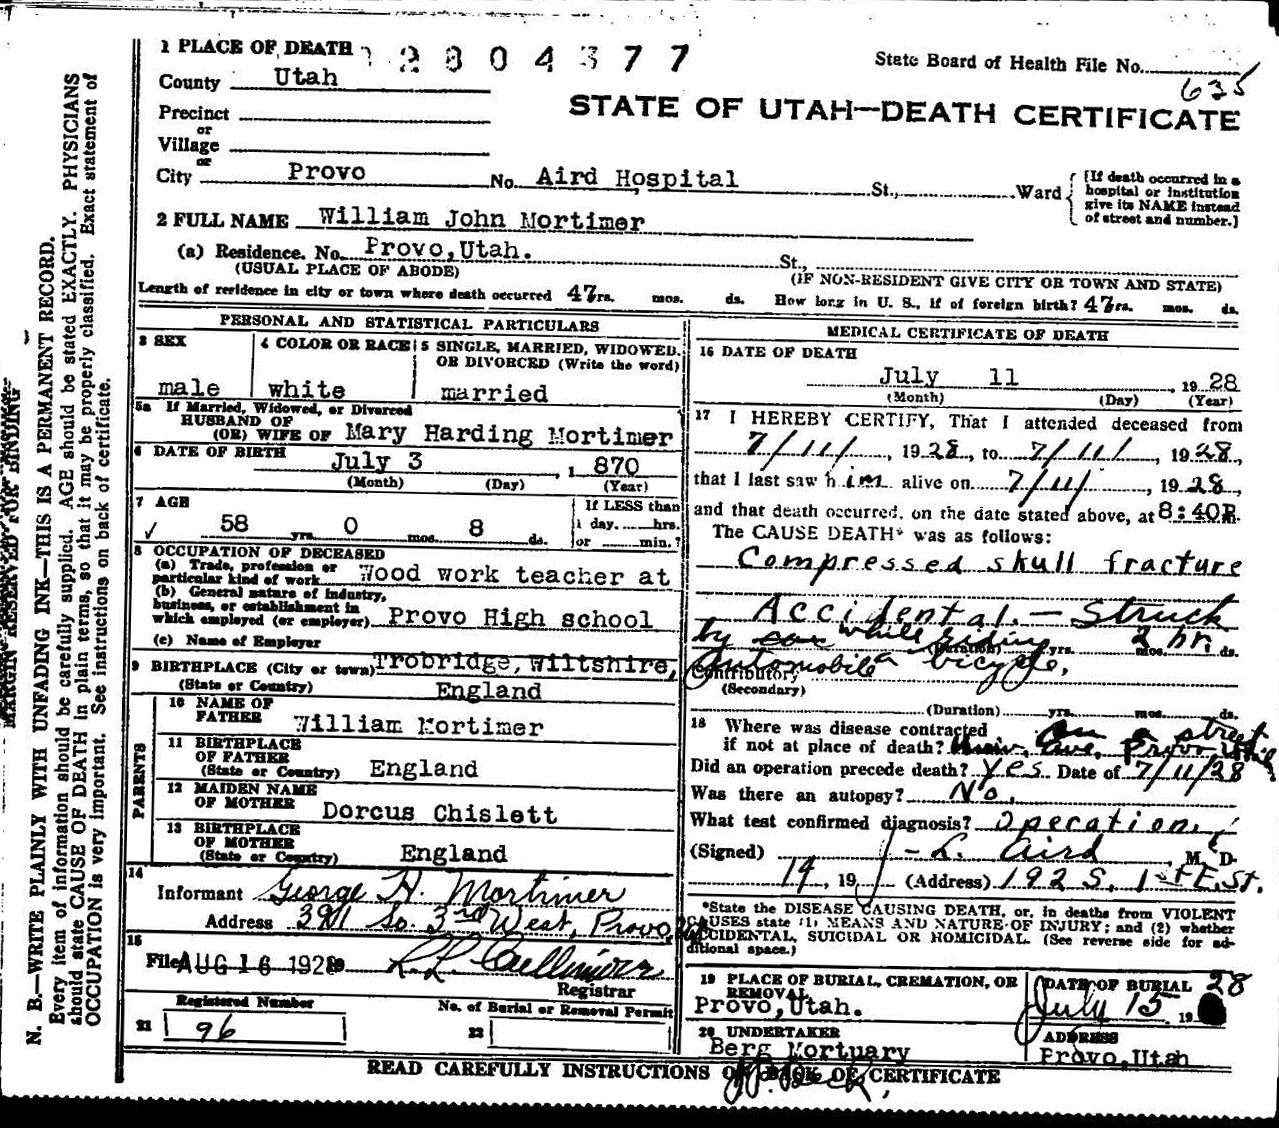 1 PLACE OF DEATH 2804377
State Board of Health File No. 635
County Utah
STATE OF UTAH—DEATH CERTIFICATE
Precinct
or
Village
or
City Provo No. Aird Hospital St., Ward
[If death occurred in a
hospital or institution
give its NAME instead
of street and number.]
2 FULL NAME William John Mortimer
(a) Residence. No. Provo, Utah. St.,
(USUAL PLACE OF ABODE) (IF NON-RESIDENT GIVE CITY OR TOWN AND STATE)
Length of residence in city or town where death occurred 47 yrs. mos. ds. How long in U. S., if of foreign birth? 47 yrs. mos. ds.
PERSONAL AND STATISTICAL PARTICULARS
3 SEX
male
4 COLOR OR RACE
white
5 SINGLE, MARRIED, WIDOWED,
OR DIVORCED (Write the word)
married
5a If Married, Widowed, or Divorced
HUSBAND OF
(OR) WIFE OF Mary Harding Mortimer
6 DATE OF BIRTH
July 3, 1870
(Month) (Day) (Year)
7 AGE
58 yrs. 0 mos. 8 ds.
If LESS than
1 day. hrs.
or min.?
8 OCCUPATION OF DECEASED
(a) Trade, profession or
particular kind of work Wood work teacher at
(b) General nature of industry,
business, or establishment in
which employed (or employer) Provo High school
(c) Name of Employer
9 BIRTHPLACE (City or town) Trobridge, Wiltshire,
(State or Country) England
PARENTS
10 NAME OF
FATHER William Mortimer
11 BIRTHPLACE
OF FATHER
(State or Country) England
12 MAIDEN NAME
OF MOTHER Dorcus Chislett
13 BIRTHPLACE
OF MOTHER
(State or Country) England
14
Informant George H. Mortimer
Address So. 3rd West, Provo,
15
Filed AUG 16 1928
Registrar
Registered Number
21 96
No. of Burial or Removal Permit
22
MEDICAL CERTIFICATE OF DEATH
16 DATE OF DEATH
July 11, 1928
(Month) (Day) (Year)
17 I HEREBY CERTIFY, That I attended deceased from
7/11/, 1928, to 7/11/, 1928,
that I last saw him alive on 7/11/, 1928,
and that death occurred, on the date stated above, at 8:40P.m.
The CAUSE DEATH* was as follows:
Compressed skull fracture
Accidental.—Struck
by car while riding 2 hr.
(Duration) yrs. mos. ds.
Automobile a bicycle.
Contributory
(Secondary)
(Duration) yrs. mos. ds.
18 Where was disease contracted On a street
if not at place of death? Univ. Ave, Provo Utah
Did an operation precede death? Yes Date of 7/11/28
Was there an autopsy? No.
What test confirmed diagnosis? Operation
(Signed) L. Aird, M. D.
14, 19 (Address) 192 S. 1st E. St.
*State the DISEASE CAUSING DEATH, or, in deaths from VIOLENT
CAUSES state (1) MEANS AND NATURE OF INJURY; and (2) whether
ACCIDENTAL, SUICIDAL OR HOMICIDAL. (See reverse side for ad-
ditional space.)
19 PLACE OF BURIAL, CREMATION, OR
REMOVAL
Provo, Utah.
DATE OF BURIAL
July 15, 1928
20 UNDERTAKER
Berg Mortuary
ADDRESS
Provo, Utah
READ CAREFULLY INSTRUCTIONS ON BACK OF CERTIFICATE
MARGIN RESERVED FOR BINDING
N. B.—WRITE PLAINLY WITH UNFADING INK—THIS IS A PERMANENT RECORD.
Every item of information should be carefully supplied. AGE should be stated EXACTLY. PHYSICIANS
should state CAUSE OF DEATH in plain terms, so that it may be properly classified. Exact statement of
OCCUPATION is very important. See instructions on back of certificate.